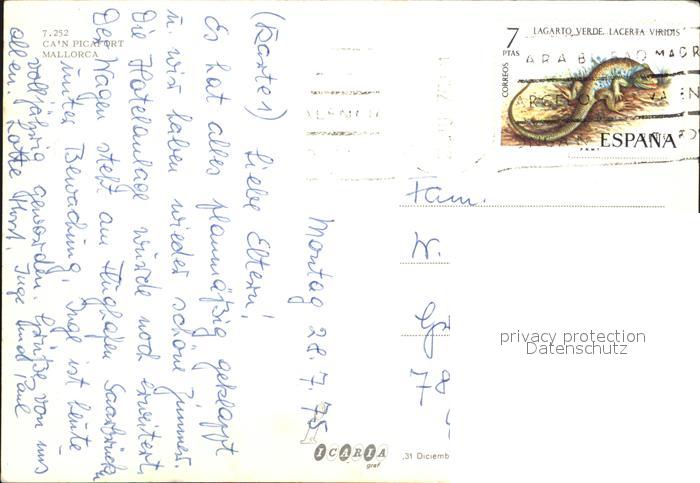 7.252
CA'N PICAFORT
MALLORCA
7
PTAS
LAGARTO VERDE. LACERTA VIRIDIS
CORREOS
ESPAÑA
Montag 28.7.75
(Karte 1) Liebe Eltern!
Es hat alles planmäßig geklappt
u. wir haben wieder schöne Zimmer.
Die Hotelanlage wurde noch erweitert.
Der Wagen steht am Flughafen Saarbrücken
unter Bewachung. Inge ist heute
volljährig geworden. Grüße von uns
allen. Lotte Horst, Inge und Paul
Fam.
W.
78
privacy protection
Datenschutz
ICARIA
graf
.31 Diciemb